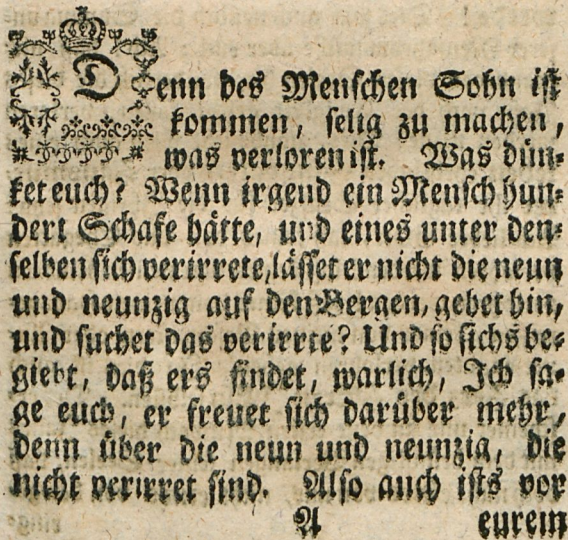 Denn des Menschen Sohn ist
kommen, selig zu machen,
was verloren ist. Was dün-
ket euch? Wenn irgend ein Mensch hun-
dert Schafe hätte, und eines unter den-
selben sich verirrete, lässet er nicht die neun
und neunzig auf den Bergen, gehet hin,
und suchet das verirrte? Und so sichs be-
giebt, daß ers findet, warlich, Ich sa-
ge euch, er freuet sich darüber mehr,
denn über die neun und neunzig, die
nicht verirret sind. Also auch ists vor
A eurem